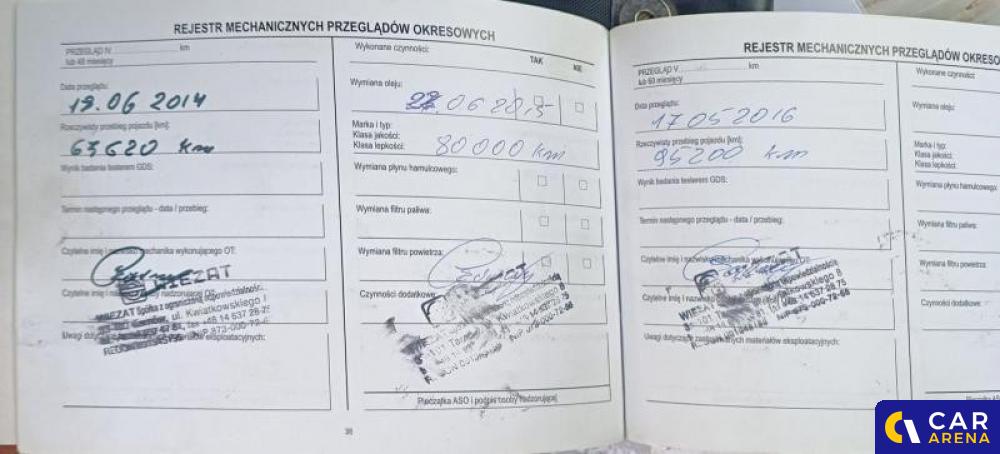 REJESTR MECHANICZNYCH PRZEGLĄDÓW OKRESOWYCH
PRZEGLĄD IV km
lub 48 miesięcy
Data przeglądu:
19.06 2014
Rzeczywisty przebieg pojazdu [km]:
63620 km
Wynik badania testerem GDS:
Termin następnego przeglądu - data / przebieg:
Czytelne imię i nazwisko mechanika wykonującego OT:
WIEZAT
Czytelne imię i nadzorującej OT:
WIEZAT Spółka z ograniczoną odpowiedzialnością
ul. Kwiatkowskiego
fax +48 14 637 28
NIP 873-000-72-
Uwagi eksploatacyjnych:
Wykonane czynności:
TAK NIE
Wymiana oleju:
22.06 2015
Marka i typ:
Klasa jakości:
Klasa lepkości:
80000 km
Wymiana płynu hamulcowego:
Wymiana filtru paliwa:
Wymiana filtru powietrza:
Czynności dodatkowe:
Kwiatkowskiego 8
Pieczątka ASO i podpis osoby nadzorującej
36
REJESTR MECHANICZNYCH PRZEGLĄDÓW OKRESO
PRZEGLĄD V km
lub 60 miesięcy
Data przeglądu:
17 05 2016
Rzeczywisty przebieg pojazdu [km]:
95200 km
Wynik badania testerem GDS:
Termin następnego przeglądu - data / przebieg:
Czytelne imię i nazwisko mechanika wykonującego OT:
WIEZAT
Czytelne imię i
Kwiatkowskiego 8
+48 14 637 28 75
NIP 873-000-72-68
Uwagi dotyczące materiałów eksploatacyjnych:
Wykonane czynności:
Wymiana oleju:
Marka i typ:
Klasa jakości:
Klasa lepkości:
Wymiana płynu hamulcowego:
Wymiana filtru paliwa:
Wymiana filtru powietrza:
Czynności dodatkowe:
Pieczątka AS
CAR
ARENA